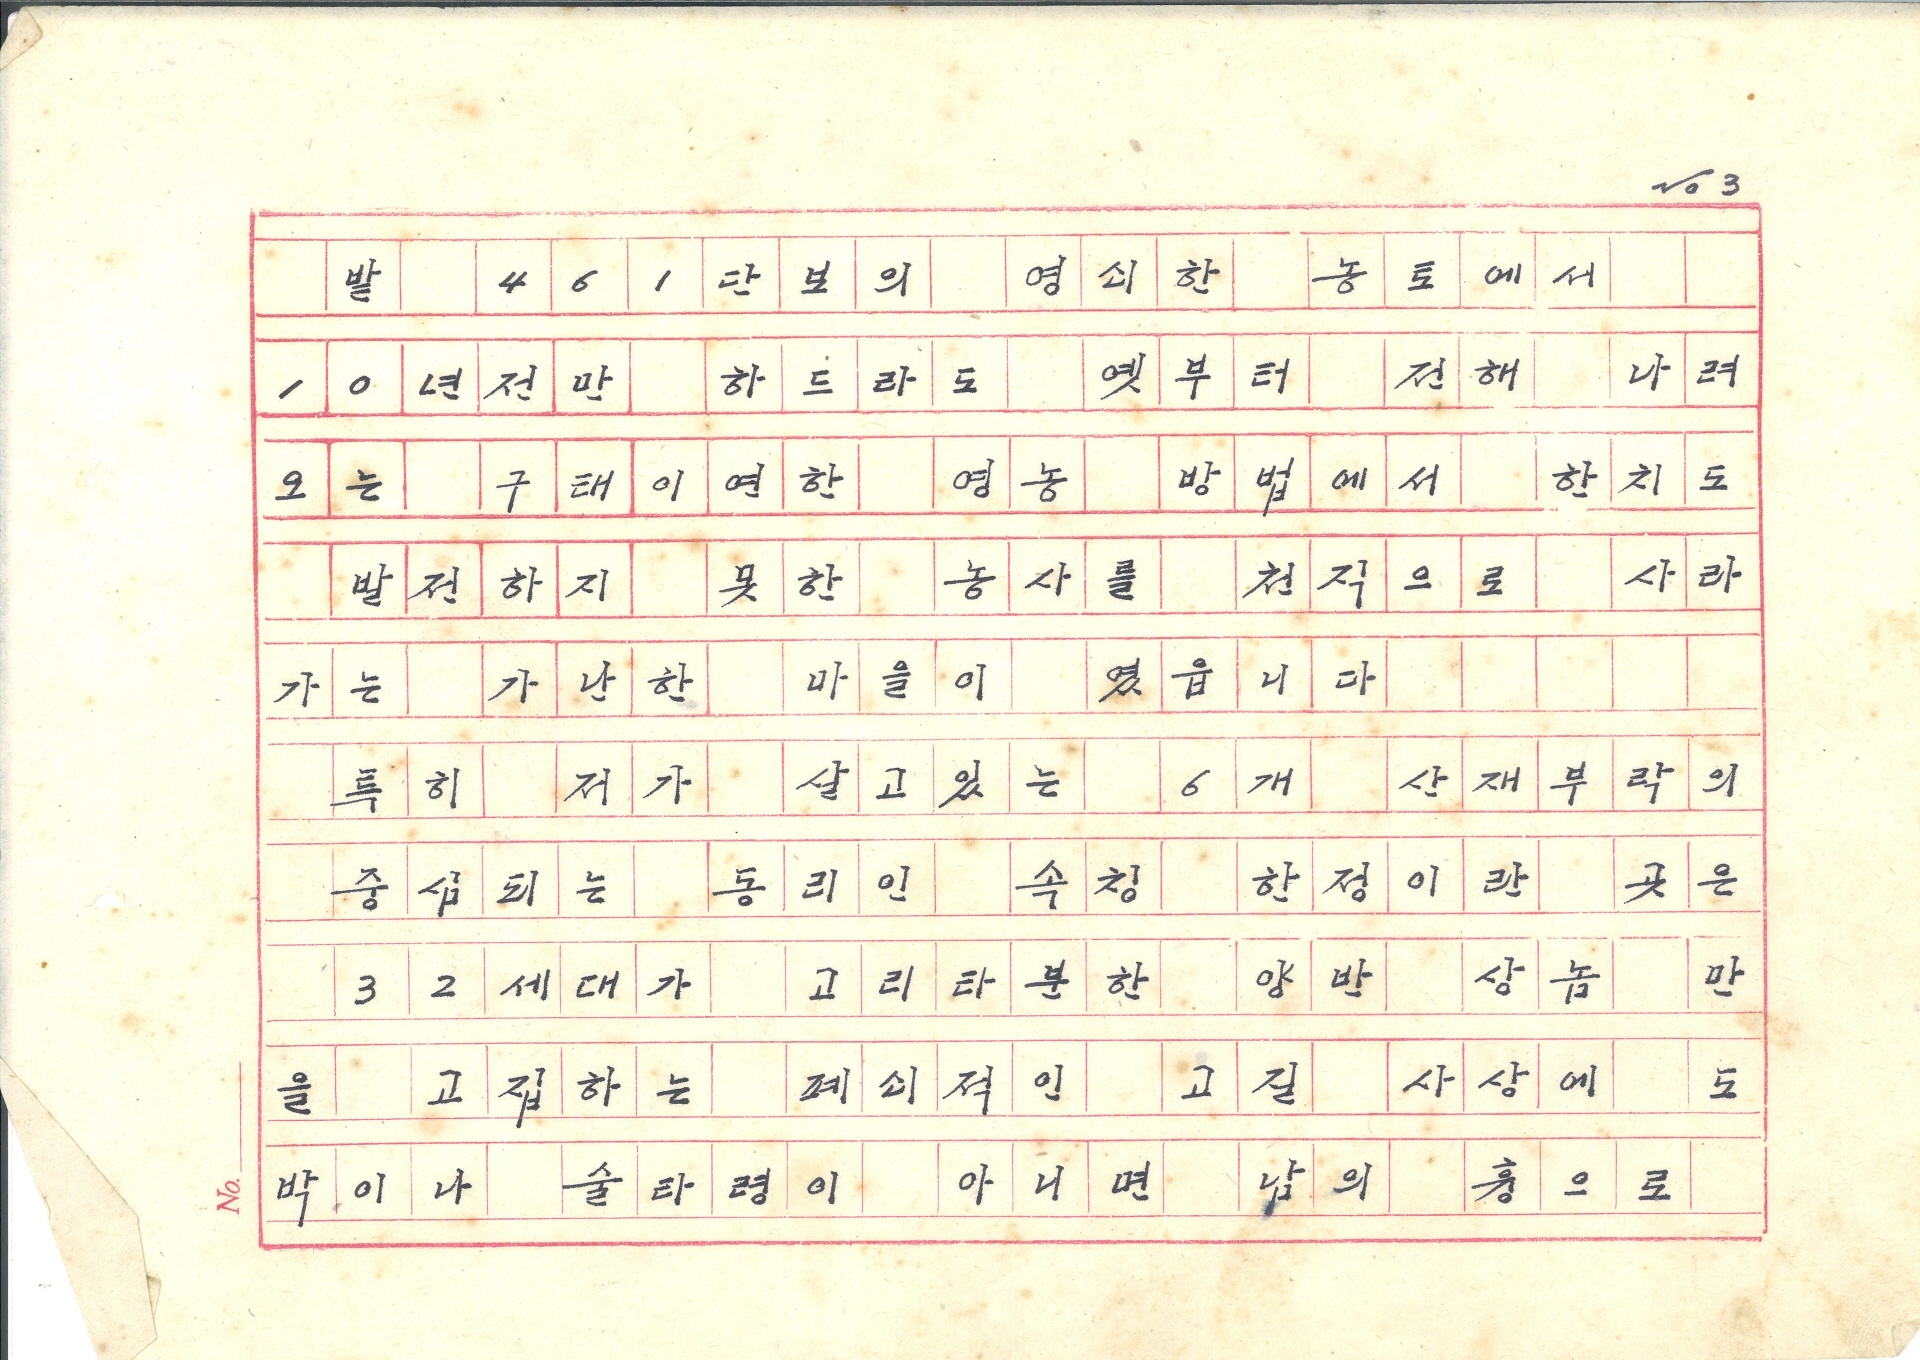 No 3
밭 461단보의 영쇠한 농토에서
10년전만 하드라도 옛부터 전해 나려
오는 구태이연한 영농 방법에서 한치도
발전하지 못한 농사를 천직으로 사라
가는 가난한 마을이 였읍니다
특히 저가 살고있는 6개 산재부락의
중심되는 동리인 속칭 한정이란 곳은
32세대가 고리타분한 양반 상놈 만
을 고집하는 폐쇠적인 고질 사상에 도
박이나 술타령이 아니면 남의 흉으로
No.